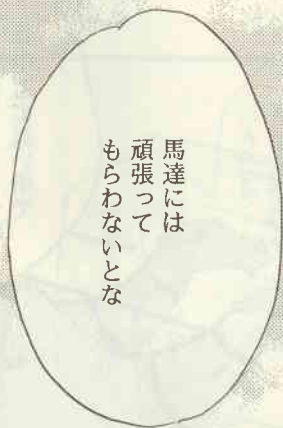 馬達には
頑張って
もらわないとな